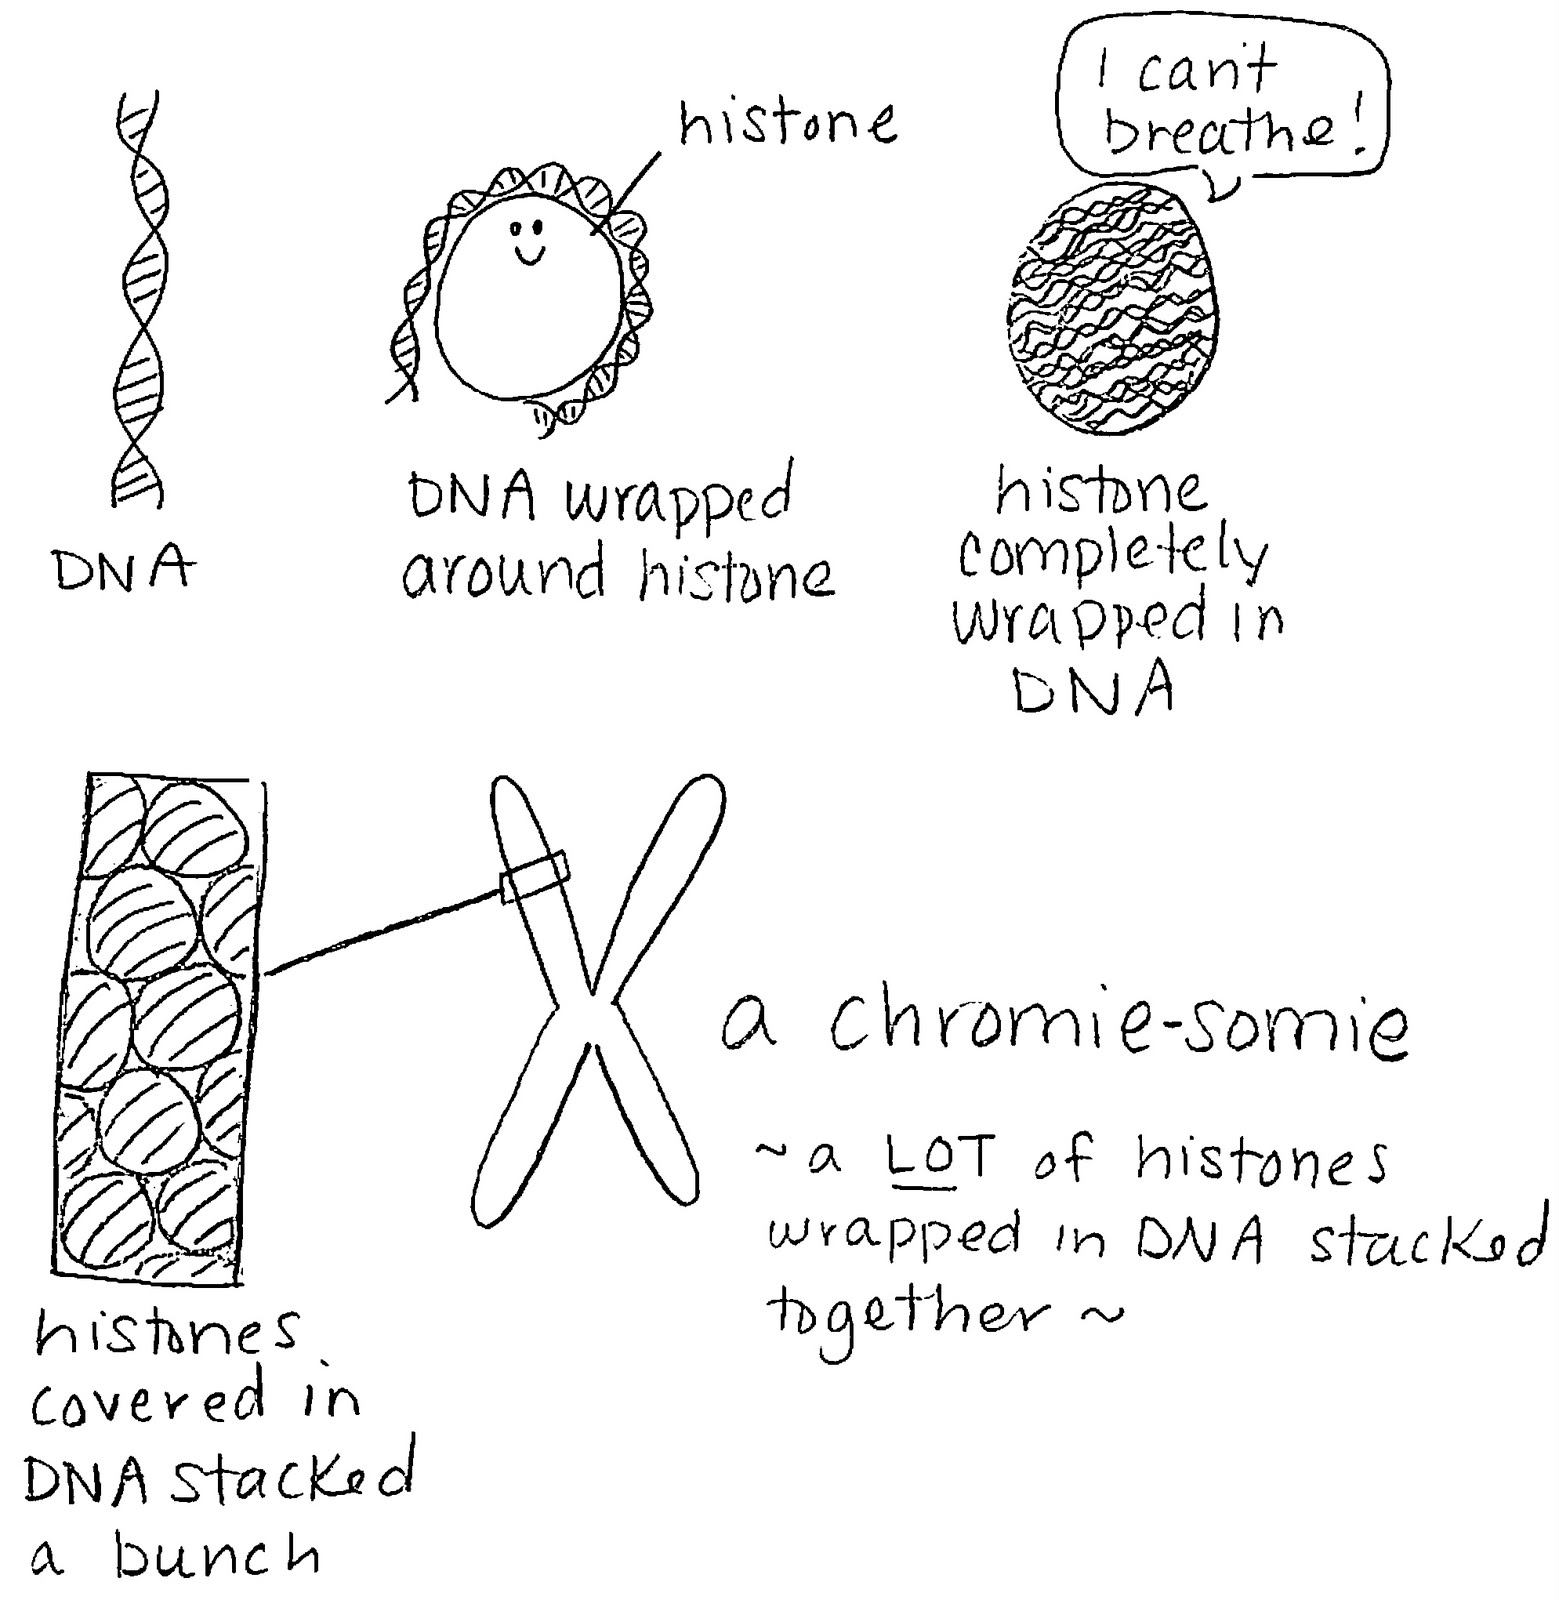 I can't
breathe!
histone
DNA
DNA wrapped
around histone
histone
completely
wrapped in
DNA
a chromie-somie
~a LOT of histones
wrapped in DNA stacked
together ~
histones
covered in
DNA stacked
a bunch